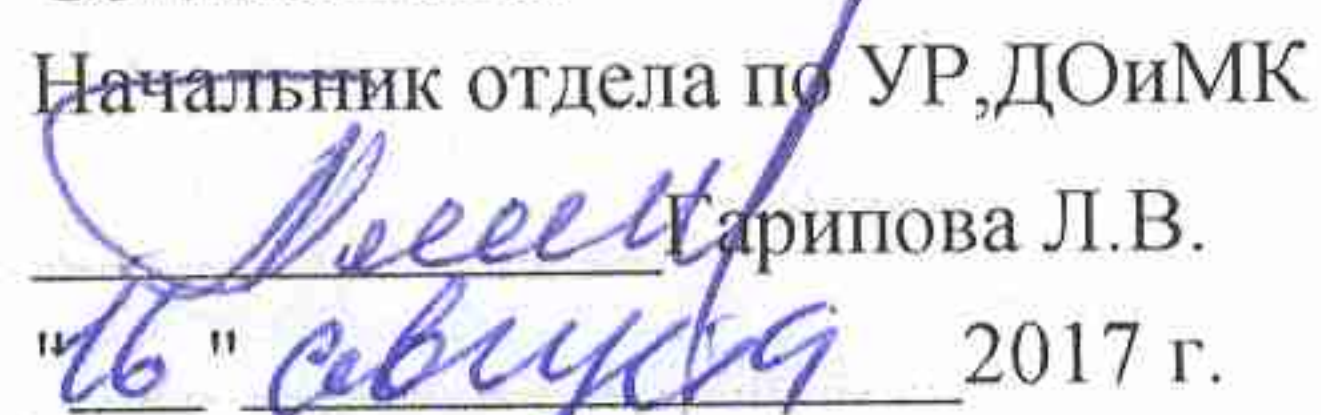 Начальник отдела по УР,ДОиМК
Гарипова Л.В.
"16" августа 2017 г.